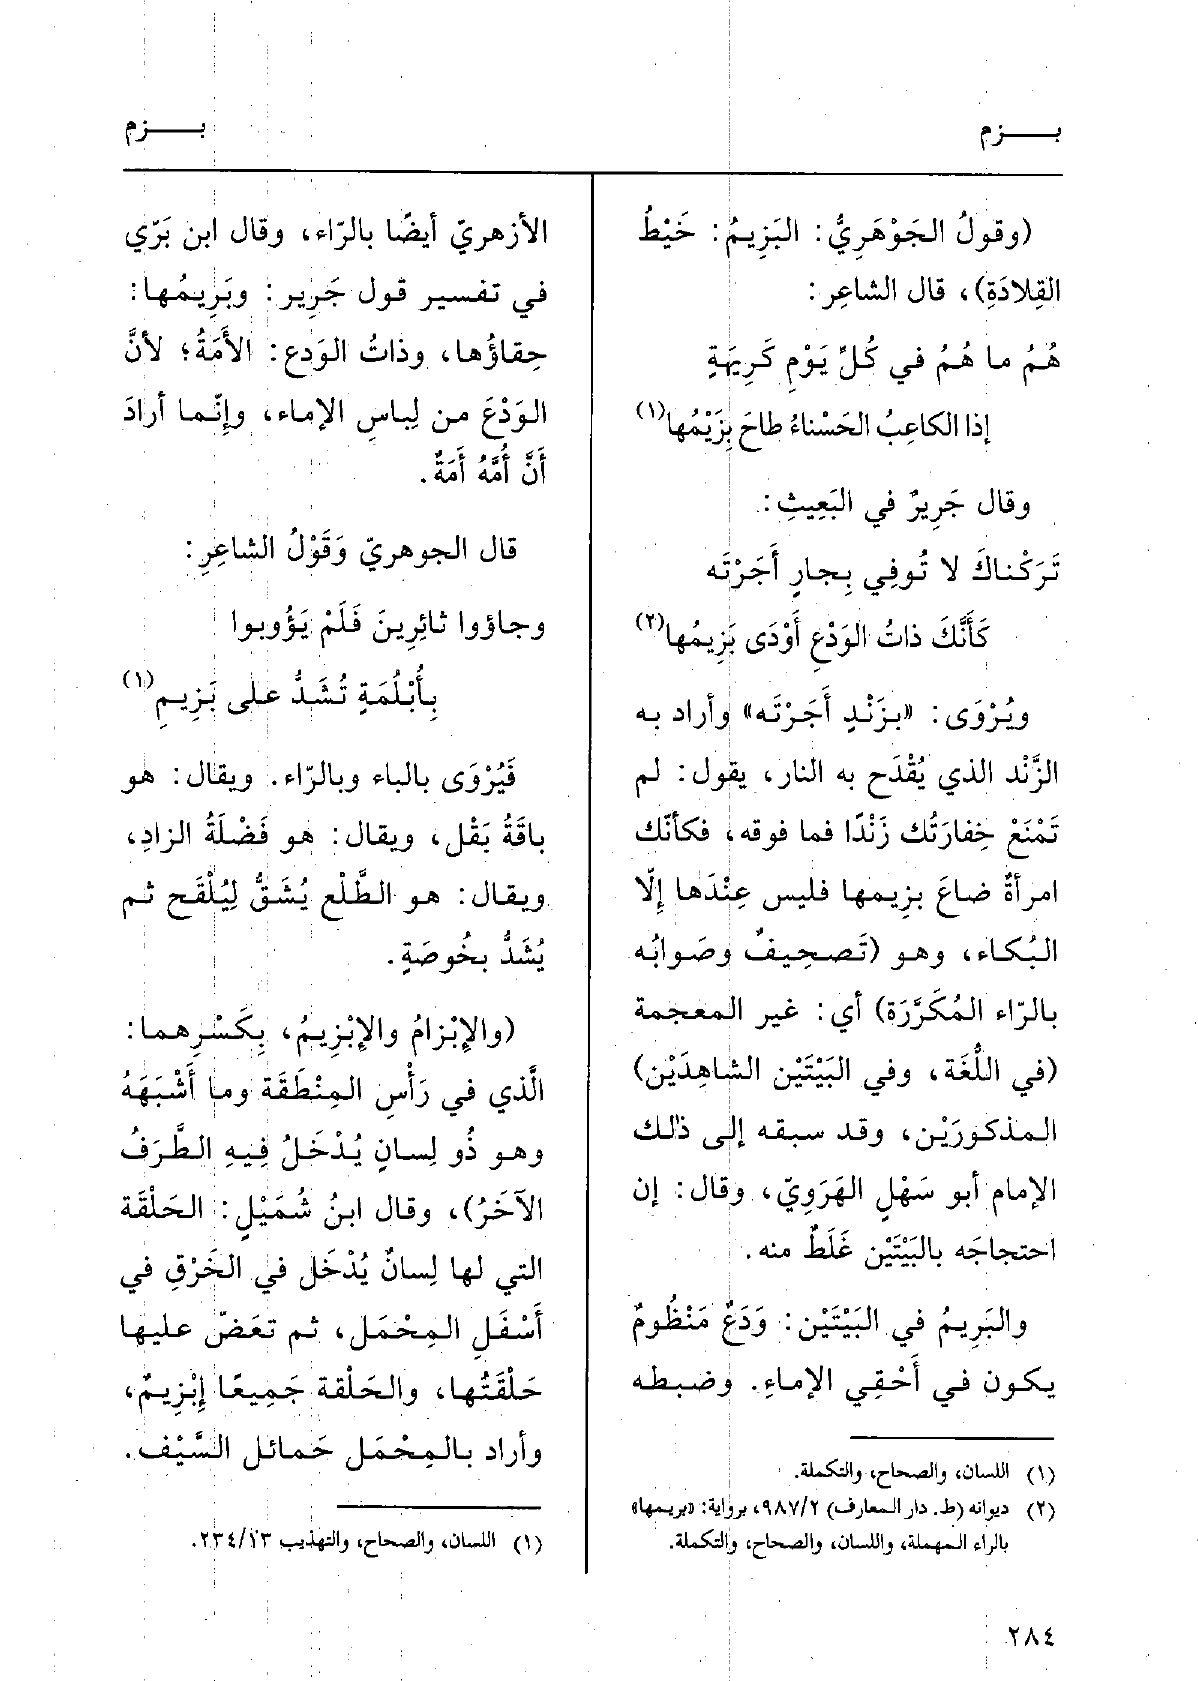 بـــزم
بـــزم
(وقولُ الجَوْهَرِيُّ: البَزِيمُ: خَيْطُ
القِلادَةِ)، قال الشاعِر:
هُمُ ما هُمُ في كُلِّ يَوْمِ كَرِيهَةٍ
إذا الكاعِبُ الحَسْناءُ طاحَ بِزَيْمُها(١)
وقال جَرِيرٌ في البَعِيثِ:
تَرَكْناكَ لا تُوفِي بِجارٍ أَجَرْتَه
كَأَنَّكَ ذاتُ الوَدْعِ أَوْدَى بَزِيمُها(٢)
ويُرْوَى: «بزَنْدٍ أَجَرْتَه» وأراد به
الزَّنْد الذي يُقْدَح به النار، يقول: لم
تَمْنَعْ خِفارَتُك زَنْدًا فما فوقه، فكأنّك
امرأةٌ ضاعَ بزيمها فليس عِنْدَها إِلّا
البُكاء، وهو (تَصحِيفٌ وصَوابُه
بالرّاء المُكَرَّرَة) أي: غير المعجمة
(في اللُّغَة، وفي البَيْتَيْن الشاهِدَيْن)
المذكورَيْن، وقد سبقه إلى ذلك
الإمام أبو سَهْلٍ الهَرَوِيّ، وقال: إن
احتجاجَه بالبَيْتَيْن غَلَطٌ منه.
والبَرِيمُ في البَيْتَيْن: وَدَعٌ مَنْظُومٌ
يكون في أَحْقِي الإماءِ. وضبطه
(١) اللسان، والصحاح، والتكملة.
(٢) ديوانه (ط. دار المعارف) ٩٨٧/٢، برواية: «بريمها»
بالراء المهملة، واللسان، والصحاح، والتكملة.
الأزهريّ أيضًا بالرّاء، وقال ابن بَرّي
في تفسير قول جَرِير: وبَرِيمُها:
حِقاؤُها، وذاتُ الوَدع: الأَمَةُ؛ لأنَّ
الوَدْعَ من لِباسِ الإماء، وإِنّما أرادَ
أَنَّ أُمَّهُ أَمَةٌ.
قال الجوهريّ وَقَوْلُ الشاعِرِ:
وجاؤوا ثائِرِينَ فَلَمْ يَؤُوبوا
بِأُبْلُمَةٍ تُشَدُّ على بَزِيمِ(١)
فَيُرْوَى بالباء وبالرّاء. ويقال: هو
باقَةُ بَقْل، ويقال: هو فَضْلَةُ الزادِ،
ويقال: هو الطَّلْع يُشَقُّ لِيُلْقَح ثم
يُشَدُّ بخُوصَةٍ.
(والإِبْزامُ والإِبْزِيمُ، بِكَسْرِهما:
الَّذي في رَأْسِ المِنْطَقَة وما أَشْبَهَهُ
وهو ذُو لِسانٍ يُدْخَلُ فِيهِ الطَّرَفُ
الآخَرُ)، وقال ابنُ شُمَيْلٍ: الحَلْقَة
التي لها لِسانٌ يُدْخَل في الخَرْقِ في
أَسْفَلِ المِحْمَل، ثم تَعَضّ عليها
حَلْقَتُها، والحَلْقة جَمِيعًا إِبْزِيمٌ،
وأراد بالمِحْمَل حَمائل السَّيْف.
(١) اللسان، والصحاح، والتهذيب ٢٣٤/١٣.
٢٨٤